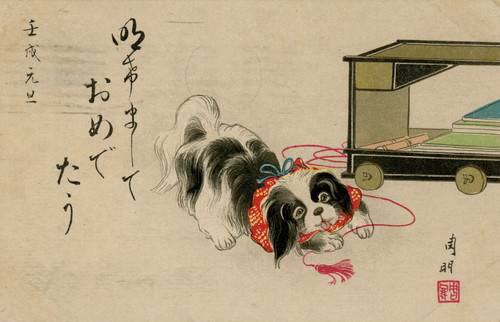 明希まして
おめで
たう
壬戌元旦
周明